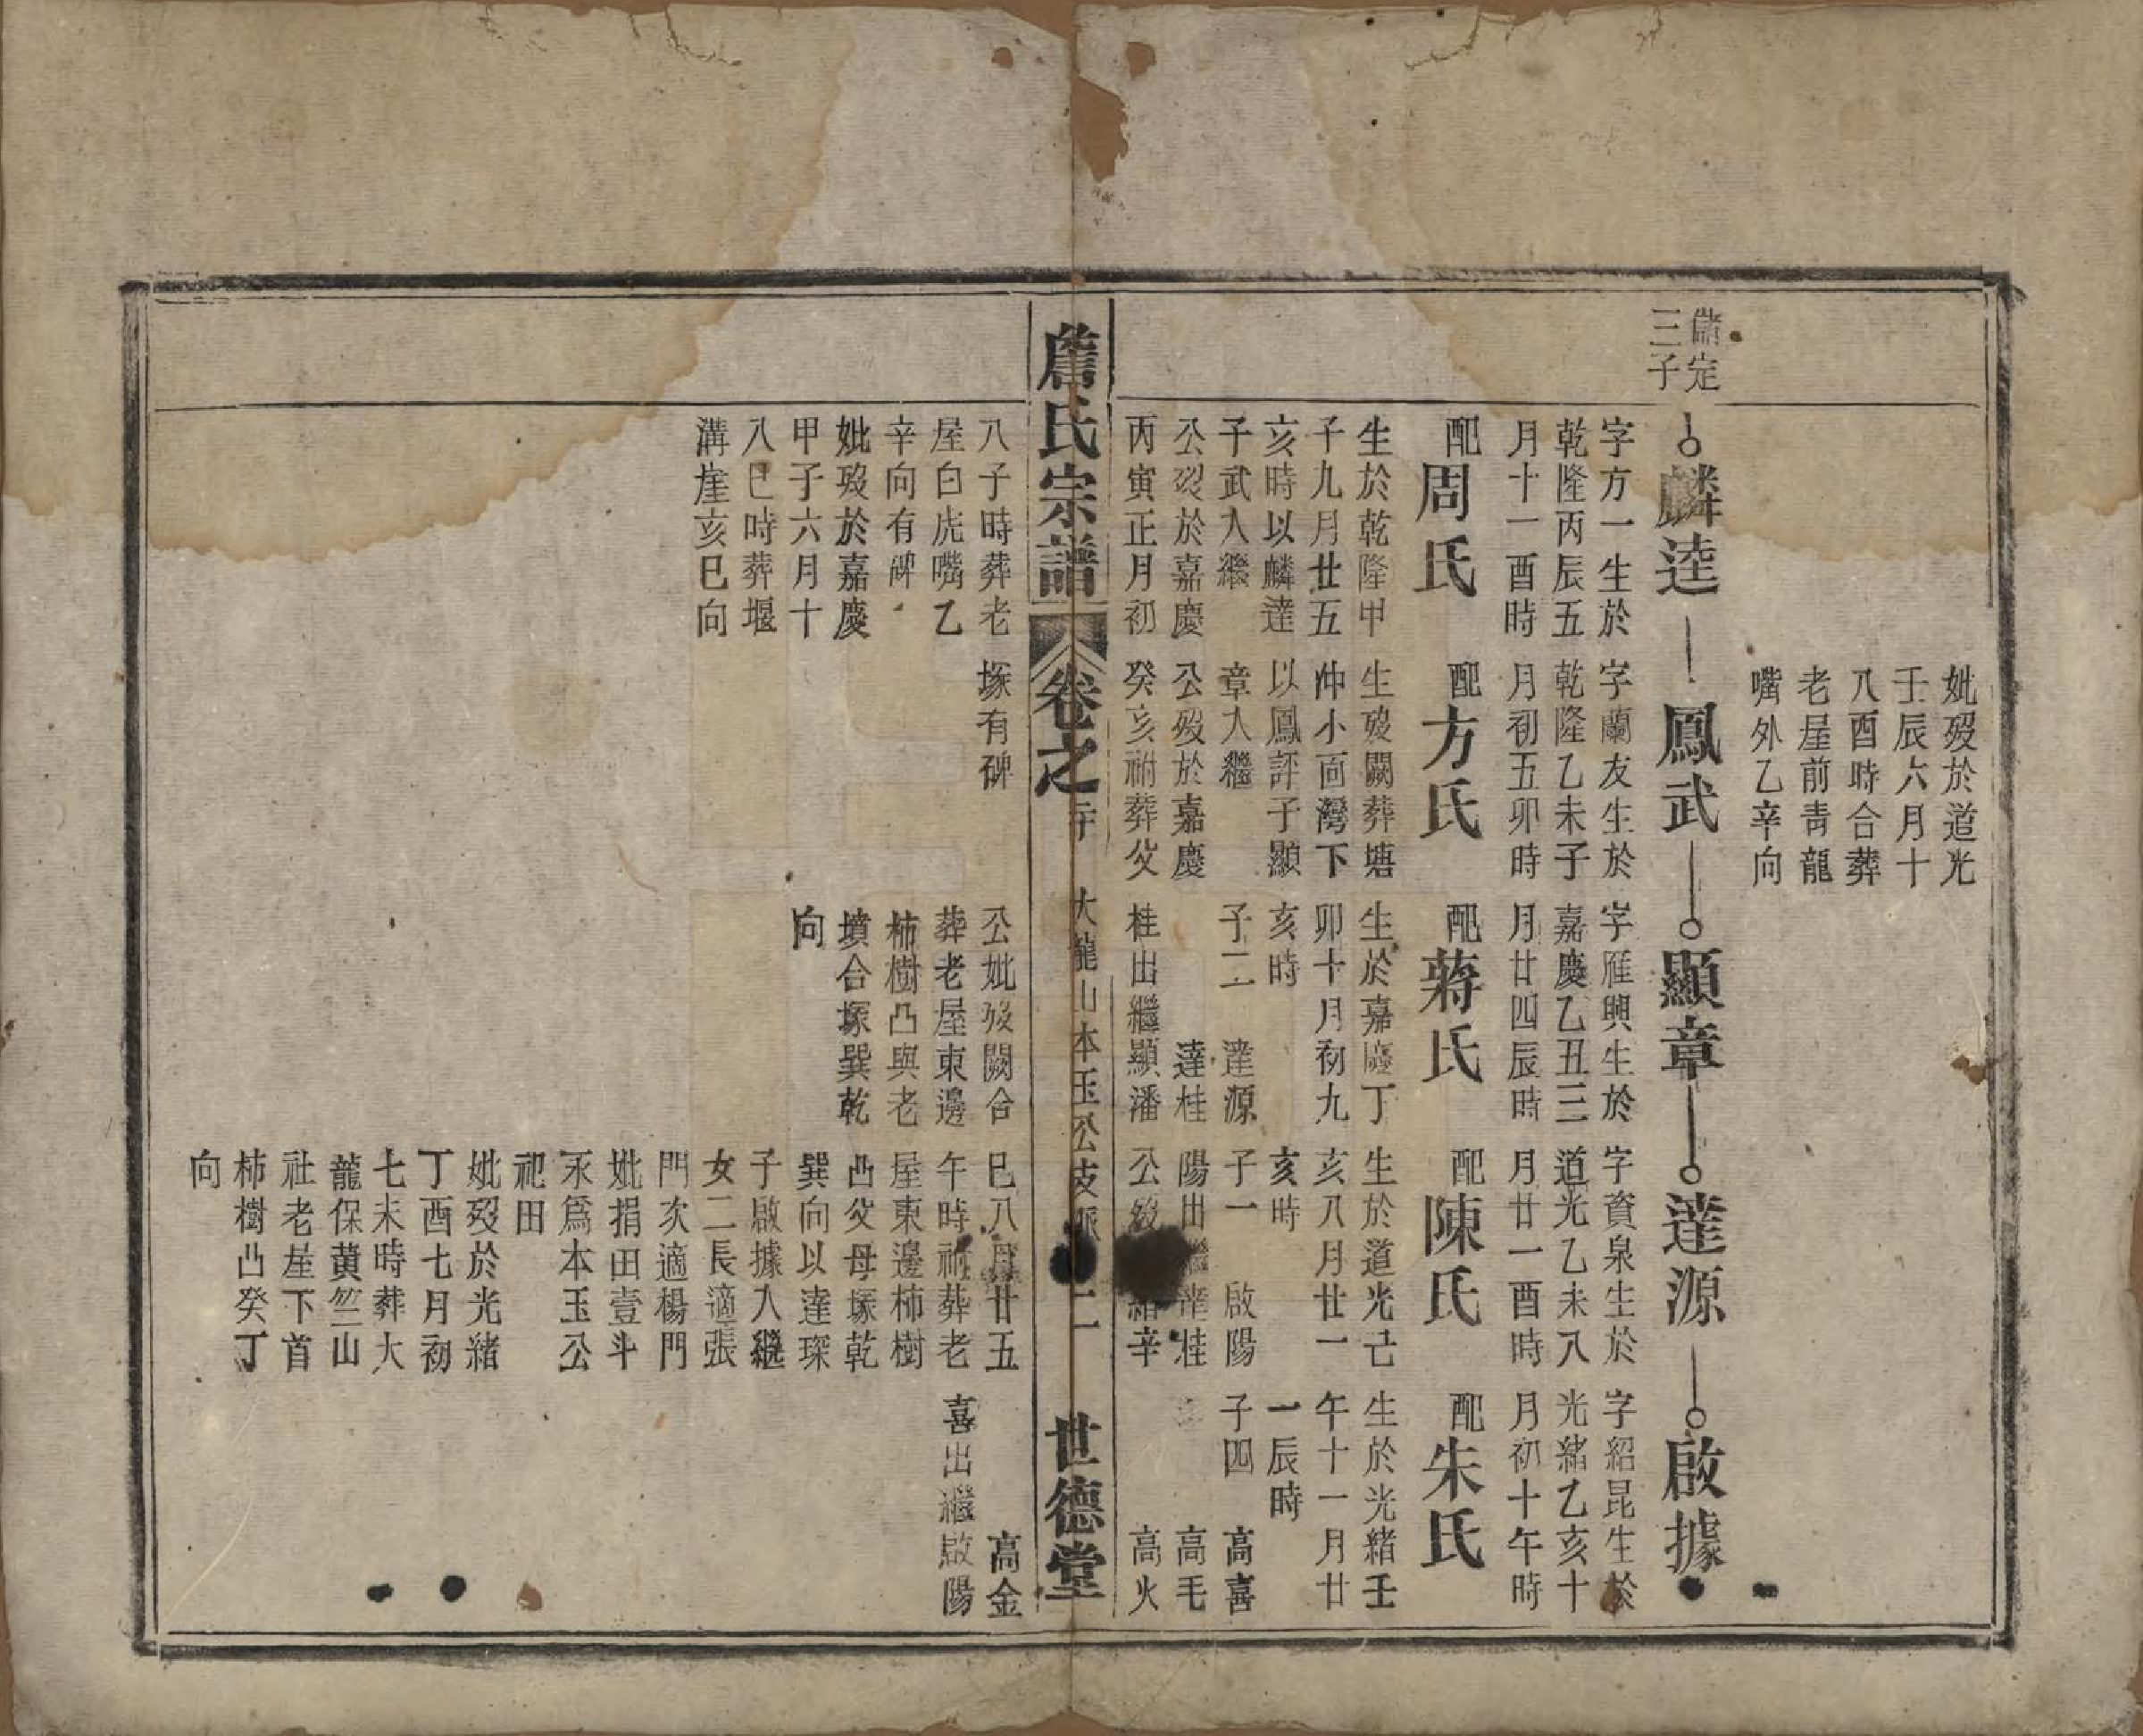 妣歿於道光
壬辰六月十
八酉時合葬
老屋前青龍
嘴外乙辛向
儲定
三子
麟逵
字方一生於
乾隆丙辰五
月十一酉時
配周氏
生於乾隆甲
子九月廿五
亥時以麟達
子武入繼
公歿於嘉慶
丙寅正月初
八子時葬老
屋白虎嘴乙
辛向有碑
妣歿於嘉慶
甲子六月十
八巳時葬堰
溝崖亥巳向
鳳武
字蘭友生於
乾隆乙未子
月初五卯時
配方氏
生歿闕葬塘
冲小面灣下
以鳳評子顯
章入繼
公歿於嘉慶
癸亥祔葬父
塚有碑
顯章
字雁興生於
嘉慶乙丑三
月廿四辰時
配蔣氏
生於嘉慶丁
卯十月初九
亥時
子二 達源
達桂
桂出繼顯潘
公妣歿闕合
葬老屋東邊
柿樹凸與老
墳合塚巽乾
向
達源
字資泉生於
道光乙未八
月廿一酉時
配陳氏
生於道光己
亥八月廿一
亥時
子一 啟陽
陽出繼達桂
公歿 緒辛
巳八月廿五
午時祔葬老
屋東邊柿樹
凸父母塚乾
巽向以達琛
子啟據入繼
女二長適張
門次適楊門
妣捐田壹斗
永爲本玉公
祀田
妣歿於光緒
丁酉七月初
七未時葬大
龍保黄竺山
社老屋下首
柿樹凸癸丁
向
啟據
字紹昆生於
光緒乙亥十
月初十午時
配朱氏
生於光緒壬
午十一月廿
一辰時
子四 高喜
高毛
高火
高金
喜出繼啟陽
詹氏宗譜
卷之二十 大龍山本玉公支派 二
世德堂